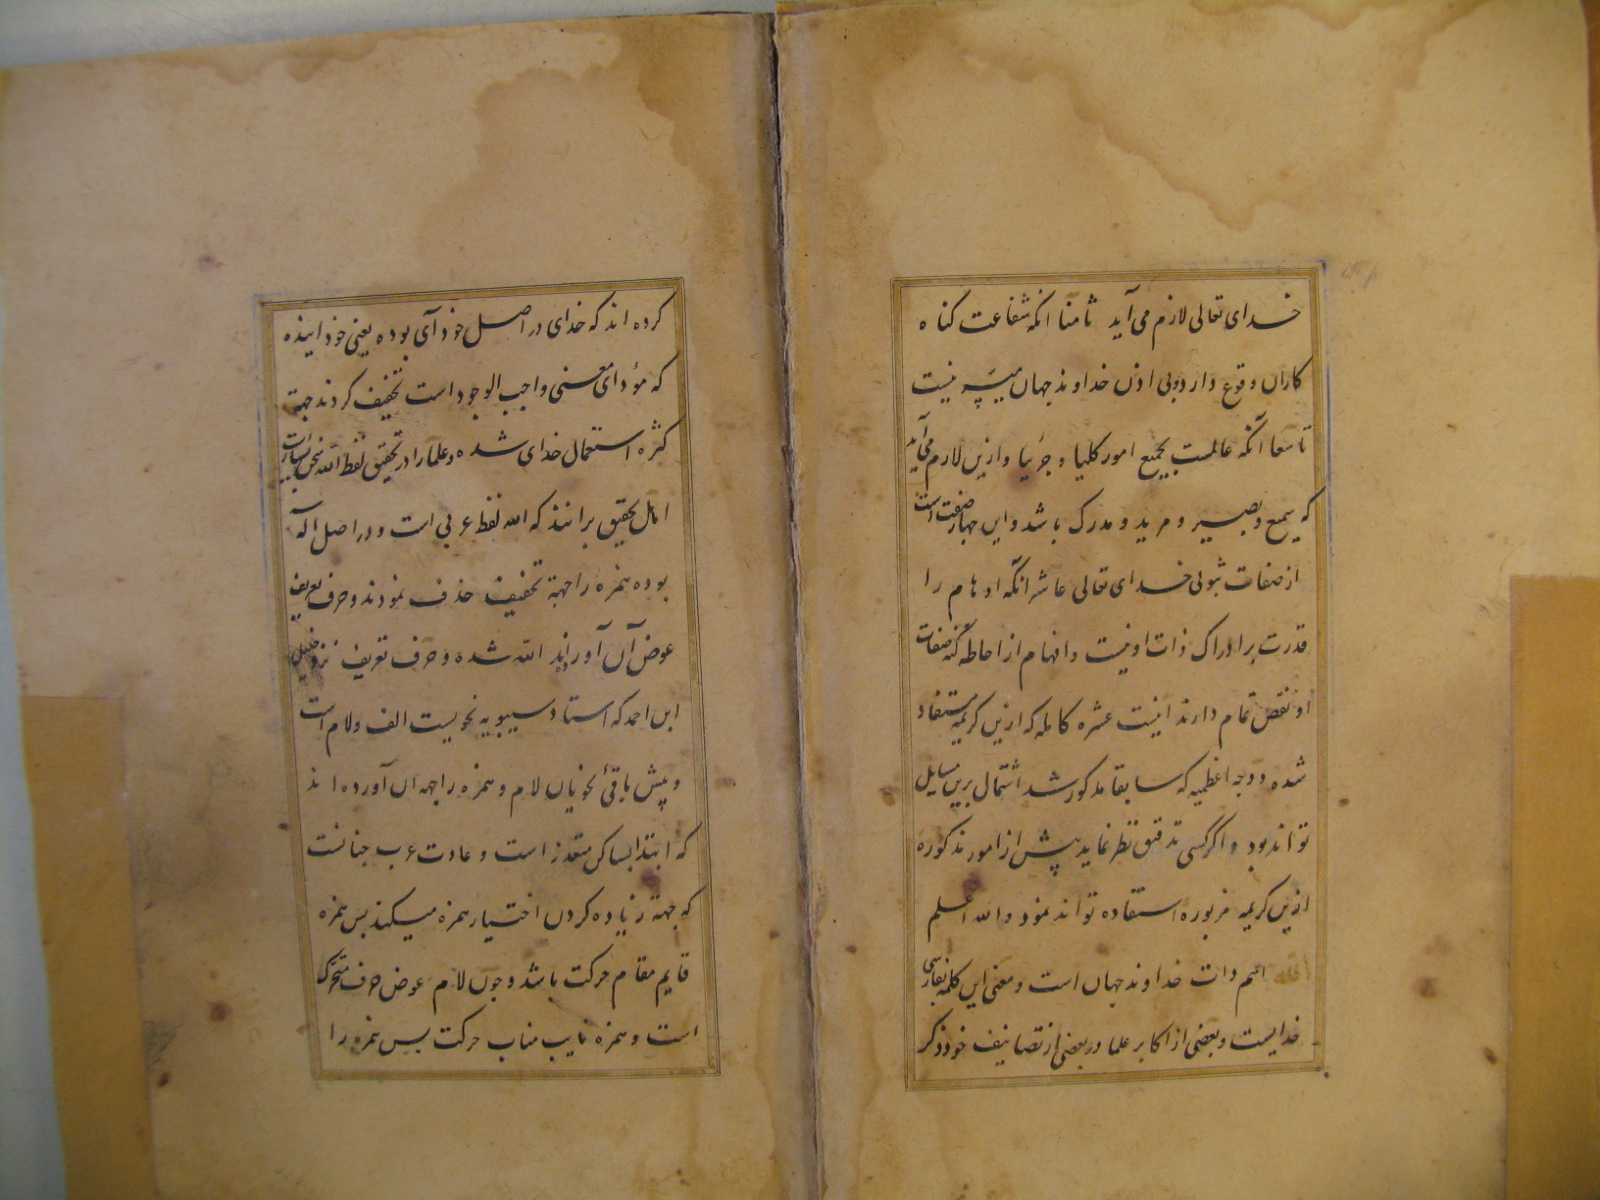 خدای تعالی لازم می آید ثامنا انکه شفاعت کناه
کاران وقوع دارد و بی اذن خداوند جهان میسر نیست
تاسعا آنکه عالمست بجمیع امور کلیا و جزئیا و ازین لازم می آید
که سمیع و بصیر و مرید و مدرک باشد و این چهار صفت است
از صفات ثبوتی خدای تعالی عاشرا انکه اوهام را
قدرت بر ادراک ذات او نیست و افهام از احاطه کنه صفات
او نقص تمام دارند اینست عشره کامله که ازین کریمه مستفاد
شده و وجه اعظمیه که سابقا مذکور شد اشتمال برین مسایل
تواند بود و اکر کسی تدقیق نظر نماید پیش از امور مذکوره
ازین کریمه مزبوره استفاده تواند نمود والله اعلم
الله اسم ذات خداوند جهان است و معنی این کلمه بفارسی
خدایست و بعضی از اکابر علما در بعضی از تصانیف خود ذکر
کرده اند که خدای در اصل خود آی بوده یعنی خود اینده
که مؤدای معنی واجب الوجود است تخفیف کردند جهة
کثره استعمال خدای شده و علما را در تحقیق لفظ الله سخن بسیار است
اهل تحقیق برانند که الله لفظ عربی است و در اصل الآله
بوده همزه را جهة تخفیف حذف نمودند و حرف تعریف
عوض آن آورده اند الله شده و حرف تعریف نزد خلیل
ابن احمد که استاد سیبویه نحویست الف و لام است
و پیش باقی نحویان لام و همزه را جهة آن آورده اند
که ابتدا بساکن متعذر است و عادت عرب چنانست
که جهة زیاده کردن اختیار همزه میکنند پس همزه
قایم مقام حرکت باشد و چون لام عوض حرف متحرک
است و همزه نایب مناب حرکت پس همزه را